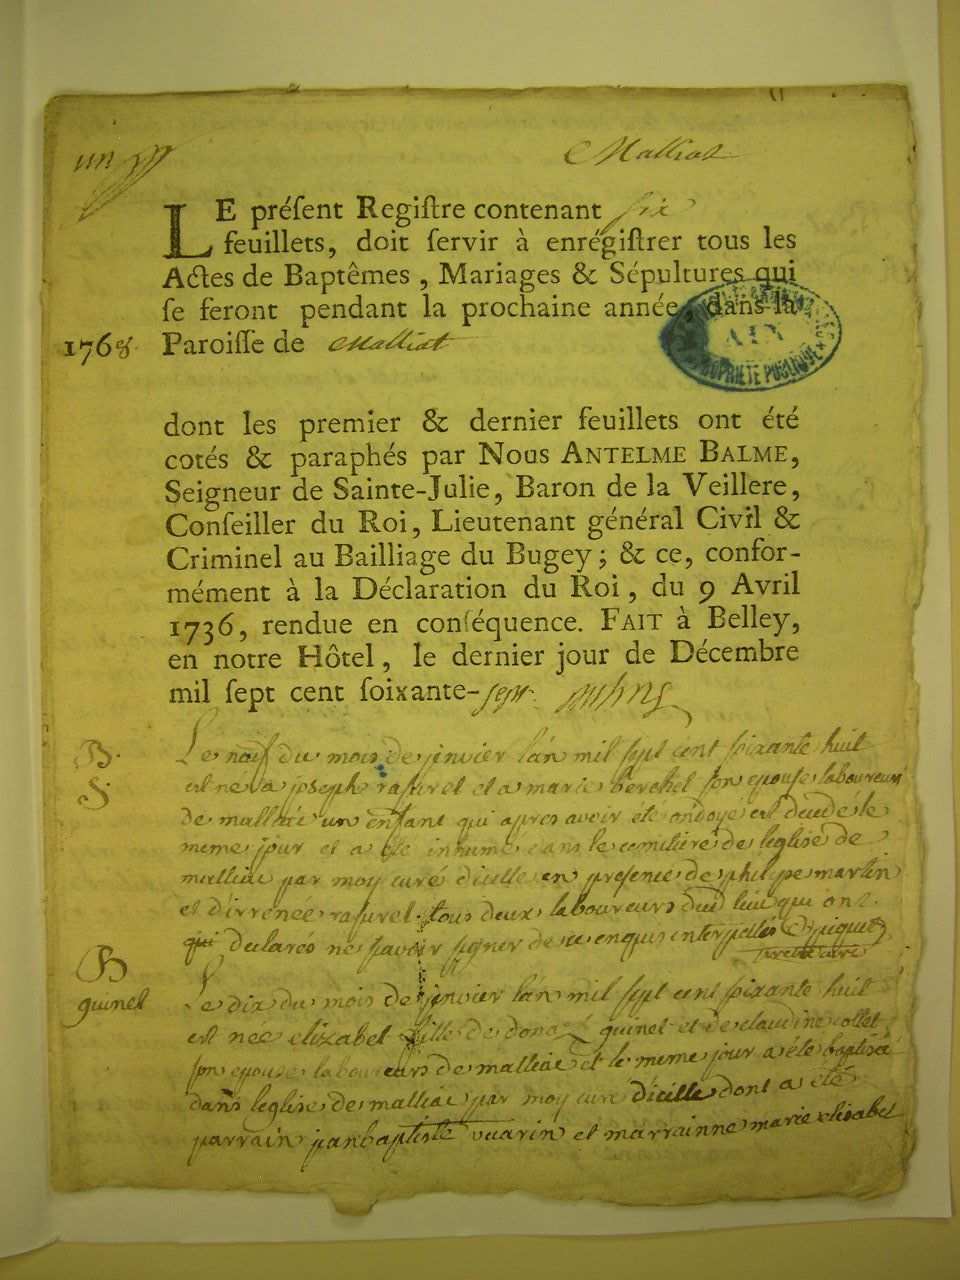 un
Malliat
LE préſent Regiſtre contenant six
feuillets, doit ſervir à enrégiſtrer tous les
Actes de Baptêmes, Mariages & Sépultures qui
ſe feront pendant la prochaine année, dans la
1768. Paroiſſe de Malliat
AIN
PROPRIÉTÉ PUBLIQUE
dont les premier & dernier feuillets ont été
cotés & paraphés par Nous ANTELME BALME,
Seigneur de Sainte-Julie, Baron de la Veillere,
Conſeiller du Roi, Lieutenant général Civil &
Criminel au Bailliage du Bugey; & ce, confor-
mément à la Déclaration du Roi, du 9 Avril
1736, rendue en conſéquence. FAIT à Belley,
en notre Hôtel, le dernier jour de Décembre
mil ſept cent ſoixante-sept.
B.
S.
Le neuf du mois de janvier l'an mil sept cent soixante huit
est né a joseph rasurel et a marie berchet son epouse laboureurs
de malliat un enfant qui apres avoir été ondoyé est decedé le
meme jour et a ete inhumé dans le cemitiere de leglise de
malliat par moy curé dicelle en presence de philipe martin
et rasurel tous deux laboureurs dud lieu qui ont
declarés ne savoir signer de ce enquis interpellés
B
guinet
Le dix du mois de janvier l'an mil sept cent soixante huit
est née elizabet fille de guinet et de claudine collet
son epouse laboureurs de malliat et le meme jour a été baptisée
dans leglise de malliat par moy curé dicelle dont a été
parrain jeanbaptiste vuarin et marrainne marie elisabet